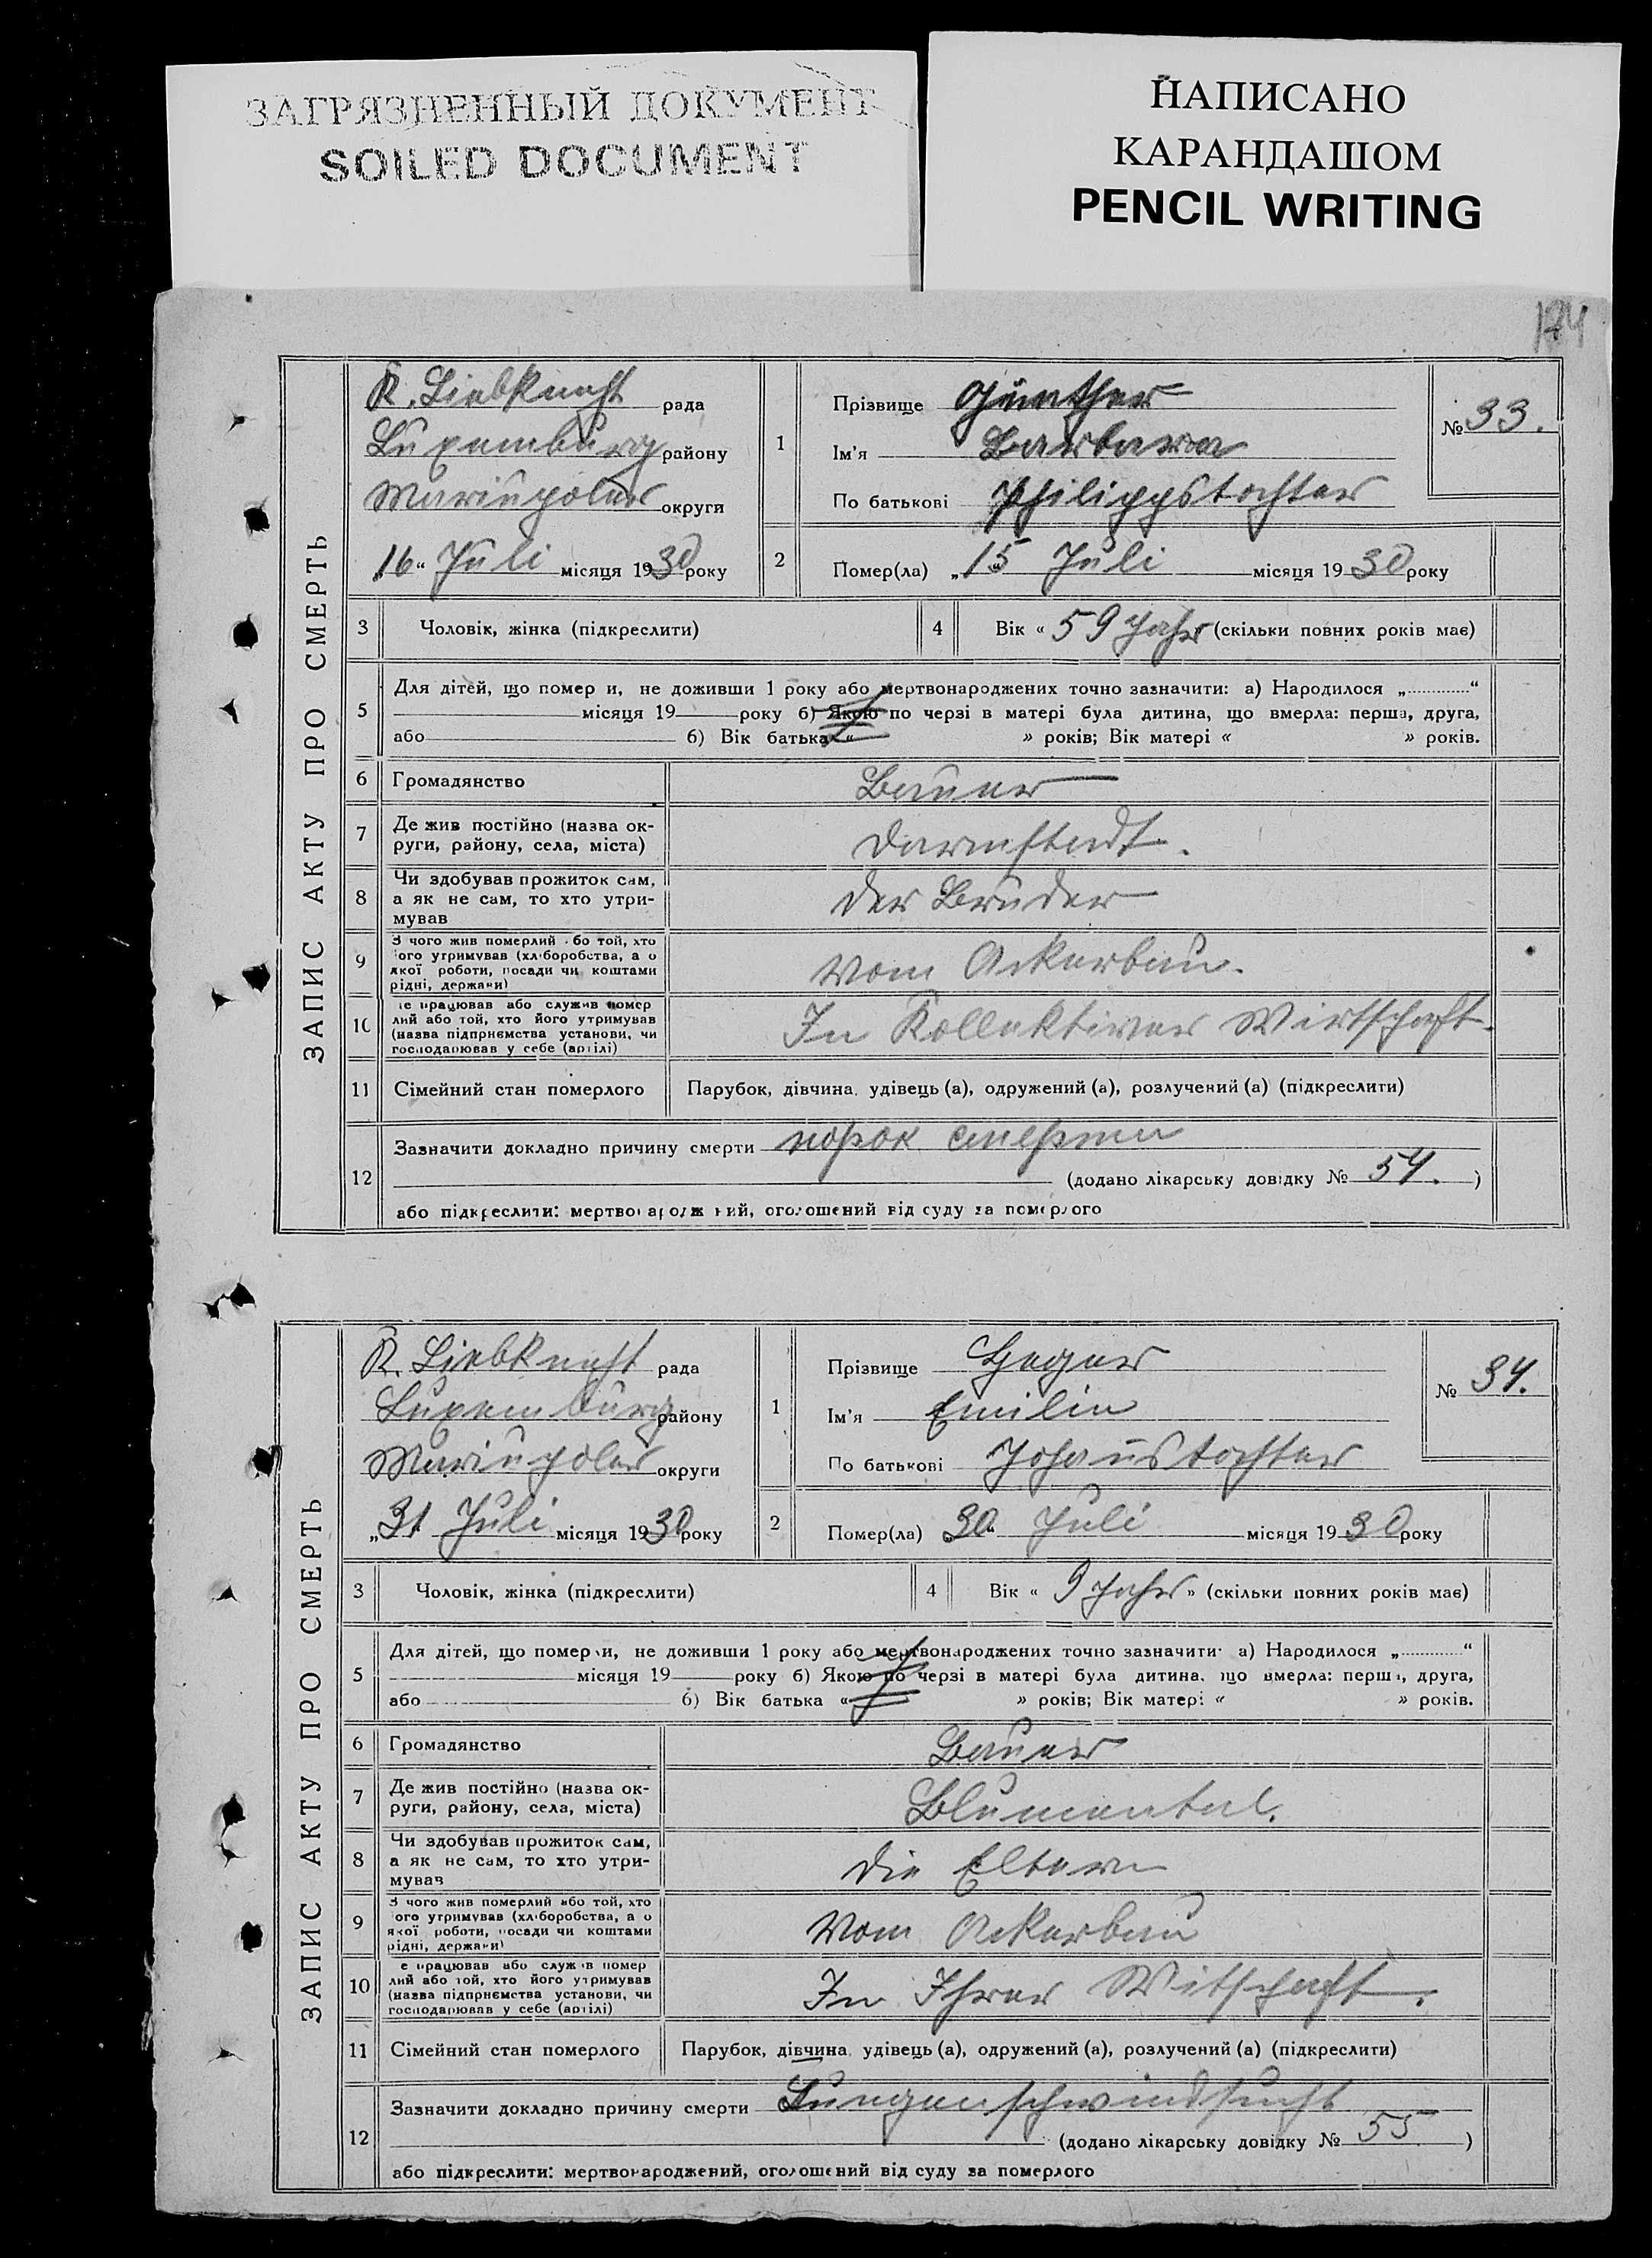 ЗАГРЯЗНЕННЫЙ ДОКУМЕНТ
SOILED DOCUMENT
НАПИСАНО
КАРАНДАШОМ
PENCIL WRITING
174
ЗАПИС АКТУ ПРО СМЕРТЬ
K. Liebknecht рада
Luxemburg району
Mariupoler округи
„16“ Juli місяця 1930 року
1
Прізвище Günther
Ім'я Barbara
По батькові Philippstochter
№ 33.
2
Помер(ла) „15 Juli місяця 1930 року
3 Чоловік, жінка (підкреслити)
4 Вік « 59 Jahr (скільки повних років має)
5
Для дітей, що помер и, не доживши 1 року або мертвонароджених точно зазначити: а) Народилося „............“
місяця 19 року б) Якою по черзі в матері була дитина, що вмерла: перша, друга,
або б) Вік батька « » років; Вік матері « » років.
6 Громадянство Bauer
7 Де жив постійно (назва ок-
руги, району, села, міста) Darmstadt.
8 Чи здобував прожиток сам,
а як не сам, то хто утри-
мував der Bruder
9 З чого жив померлий або той, хто
ого утримував (хліборобства, а о
якої роботи, посади чи коштами
рідні, держави) Vom Ackerbau.
10 е працював або служив помер
лий або той, хто його утримував
(назва підприємства установи, чи
господарював у себе (артілі) In Kollektiver Wirtschaft.
11 Сімейний стан померлого Парубок, дівчина, удівець (а), одружений (а), розлучений (а) (підкреслити)
12
Зазначити докладно причину смерти порок смерти
(додано лікарську довідку № 54. )
або підкреслити: мертвонароджений, оголошений від суду за померлого
ЗАПИС АКТУ ПРО СМЕРТЬ
K. Liebknecht рада
Luxemburg району
Mariupoler округи
„31 Juli місяця 1930 року
1
Прізвище Heger
Ім'я Emilie
По батькові Johanstochter
№ 34.
2
Помер(ла) 30“ Juli місяця 1930 року
3 Чоловік, жінка (підкреслити)
4 Вік « 9 Jahr » (скільки повних років має)
5
Для дітей, що померли, не доживши 1 року або мертвонароджених точно зазначити: а) Народилося „............“
місяця 19 року б) Якою по черзі в матері була дитина, що вмерла: перша, друга,
або б) Вік батька « » років; Вік матері « » років.
6 Громадянство Bauer
7 Де жив постійно (назва ок-
руги, району, села, міста) Blumental.
8 Чи здобував прожиток сам,
а як не сам, то хто утри-
мував die Eltern
9 З чого жив померлий або той, хто
ого утримував (хліборобства, а о
якої роботи, посади чи коштами
рідні, держави) Vom Ackerbau
10 е працював або служив помер
лий або той, хто його утримував
(назва підприємства установи, чи
господарював у себе (артілі) In Ihrer Witschaft.
11 Сімейний стан померлого Парубок, дівчина, удівець (а), одружений (а), розлучений (а) (підкреслити)
12
Зазначити докладно причину смерти Lungenschwindsucht
(додано лікарську довідку № 55 )
або підкреслити: мертвонароджений, оголошений від суду за померлого